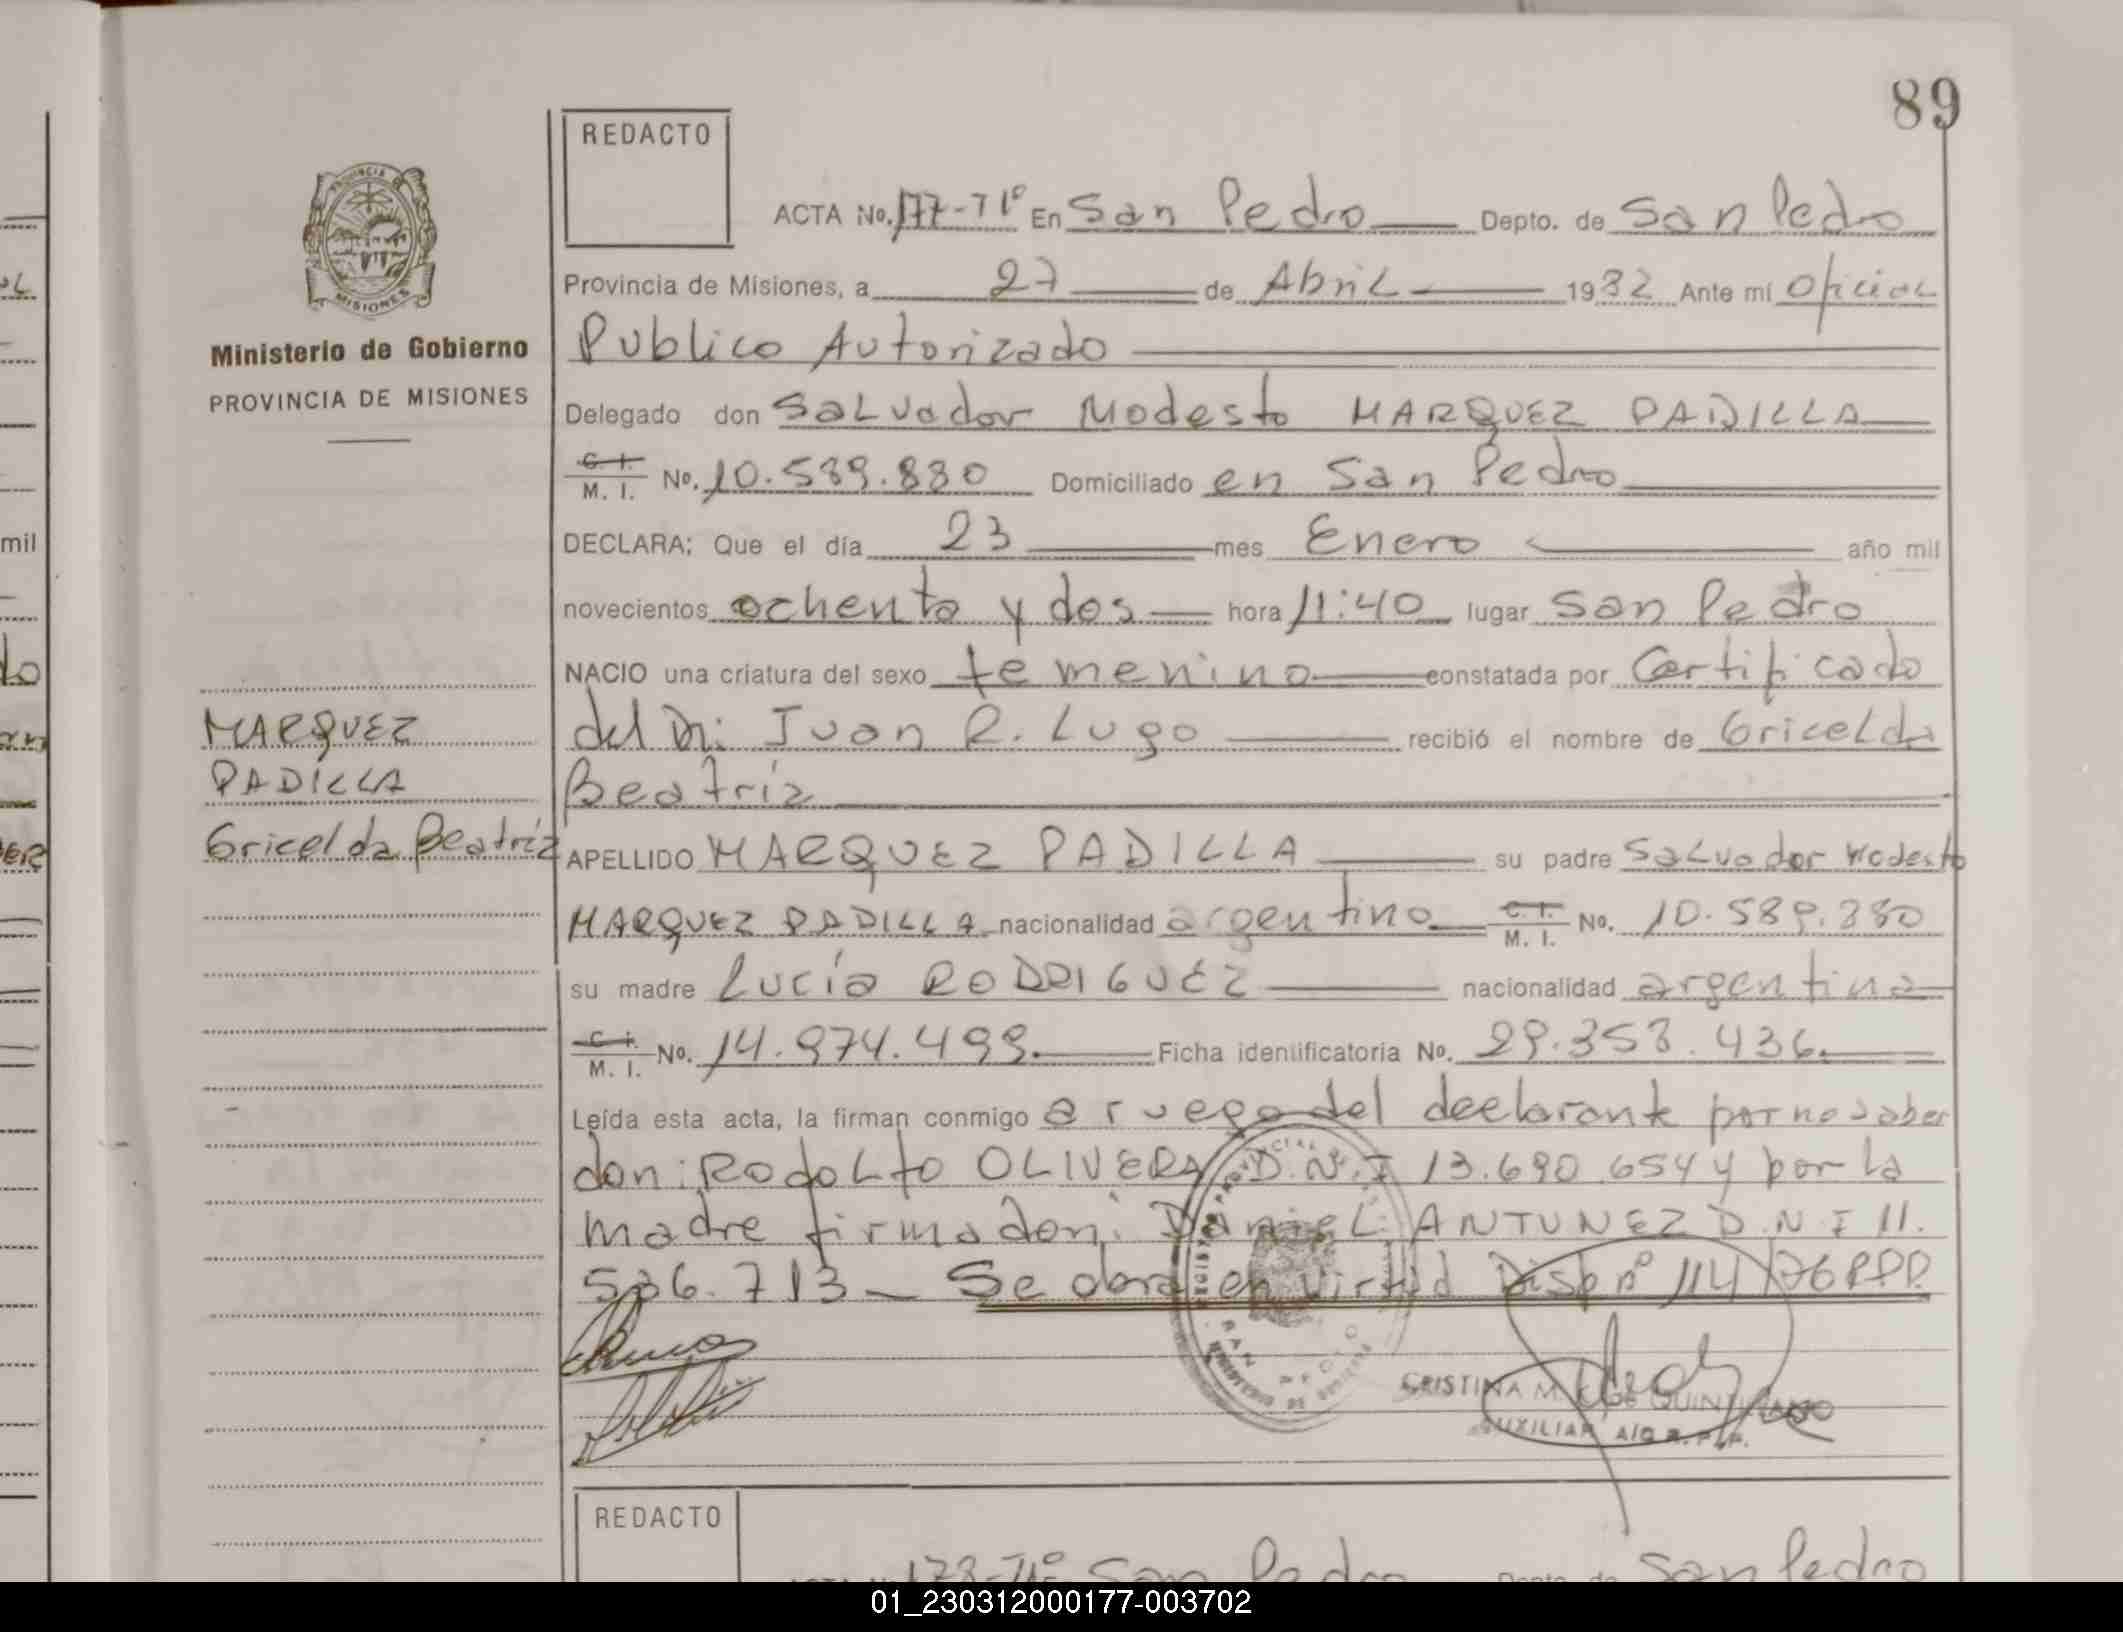 89
REDACTO
ACTA No. 177-T1º En San Pedro Depto. de San Pedro
PROVINCIA DE
MISIONES
Provincia de Misiones, a 27 de Abril 1982 Ante mí Oficial
Ministerio de Gobierno
PROVINCIA DE MISIONES
Publico Autorizado
Delegado don Salvador Modesto MARQUEZ PADILLA
C. I.
M. I. No. 10.589.880 Domiciliado en San Pedro
DECLARA: Que el día 23 mes Enero año mil
novecientos ochenta y dos hora 11:40 lugar San Pedro
NACIO una criatura del sexo femenino constatada por Certificado
del Dr: Juan R. Lugo recibió el nombre de Gricelda
Beatríz
MARQUEZ
PADILLA
Gricelda Beatríz
APELLIDO MARQUEZ PADILLA su padre Salvador Modesto
MARQUEZ PADILLA nacionalidad argentino C. I. M. I. No. 10.589.880
su madre Lucía RODRIGUEZ nacionalidad argentina
C. I.
M. I. No. 14.974.499. Ficha identificatoria No. 29.353.436.
Leída esta acta, la firman conmigo a ruego del declarante por no saber
don: Rodolfo OLIVERA D.N.I 13.690.654 y por la
madre firma don: Daniel ANTUNEZ D.N.I 11.
536.713 — Se obra en virtud Disp nº 114/76 R.P.P.
CRISTINA M. DE QUINTANA
AUXILIAR A/C R.P.P.
REDACTO
178-T1º San Pedro Depto. de San Pedro
mil
01_230312000177-003702